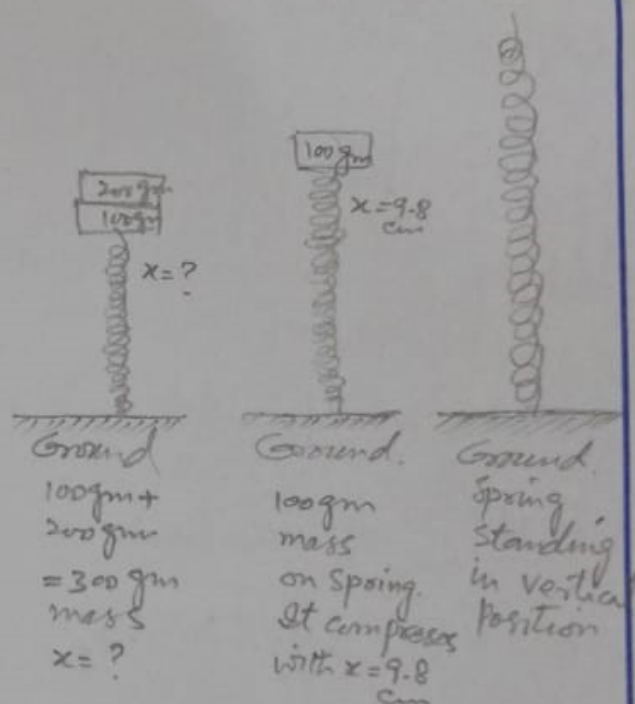 200gm
100gm
x=?
Ground
100gm+
200gm
=300gm
mass
x=?
100gm
x=9.8
cm
Ground.
100gm
mass
on Spring.
It compresses
with x=9.8
cm
Ground.
Spring
Standing
in vertical
Position